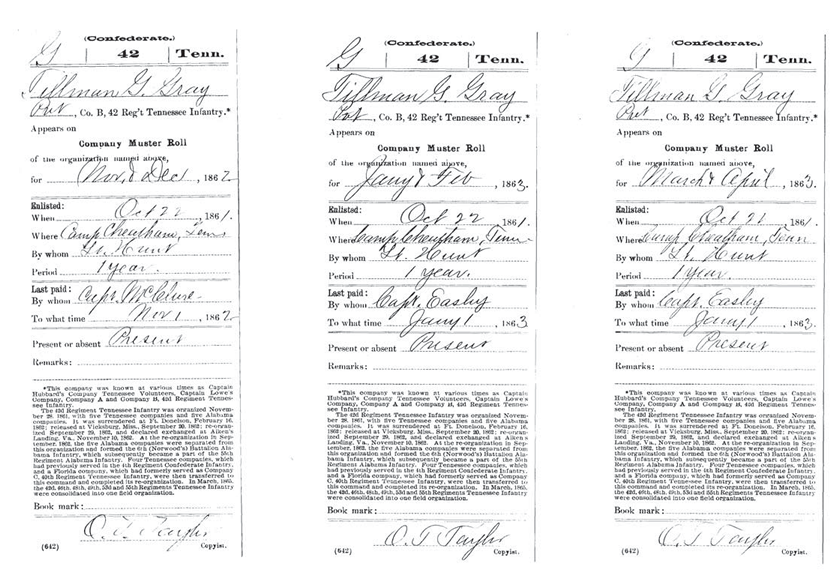 (Confederate.)
G | 42 | Tenn.
Tillman G. Gray
Pvt, Co. B, 42 Reg't Tennessee Infantry.*
Appears on
Company Muster Roll
of the organization named above,
for Nov & Dec, 1862.
Enlisted:
When Oct 22, 1861.
Where Camp Cheatham, Tenn
By whom Lt. Hunt
Period 1 year.
Last paid:
By whom Capt. McClure
To what time Nov 1, 1862.
Present or absent Present
Remarks:
*This company was known at various times as Captain
Hubbard's Company Tennessee Volunteers, Captain Lowe's
Company, Company A and Company H, 42d Regiment Tennes-
see Infantry.
The 42d Regiment Tennessee Infantry was organized Novem-
ber 28, 1861, with five Tennessee companies and five Alabama
companies. It was surrendered at Ft. Donelson, February 16,
1862; released at Vicksburg, Miss., September 20, 1862; re-organ-
ized September 29, 1862, and declared exchanged at Aiken's
Landing, Va., November 10, 1862. At the re-organization in Sep-
tember, the five Alabama companies were separated from
this organization and formed the 6th (Norwood's) Battalion Ala-
bama Infantry, which subsequently became a part of the 55th
Regiment Alabama Infantry. Four Tennessee companies, which
had previously served in the 4th Regiment Confederate Infantry,
and a Florida company, which had formerly served as Company
C, 40th Regiment Tennessee Infantry, were then transferred to
this command and completed its re-organization. In March, 1865,
the 42d, 46th, 48th, 49th, 53d and 55th Regiments Tennessee Infantry
were consolidated into one field organization.
Book mark:
O. T. Taylor
(642) Copyist.
(Confederate.)
G | 42 | Tenn.
Tillman G. Gray
Pvt, Co. B, 42 Reg't Tennessee Infantry.*
Appears on
Company Muster Roll
of the organization named above,
for Jany & Feb, 1863.
Enlisted:
When Oct 22, 1861.
Where Camp Cheatham, Tenn
By whom Lt. Hunt
Period 1 year.
Last paid:
By whom Capt. Easley
To what time Jany 1, 1863.
Present or absent Present
Remarks:
*This company was known at various times as Captain
Hubbard's Company Tennessee Volunteers, Captain Lowe's
Company, Company A and Company H, 42d Regiment Tennes-
see Infantry.
The 42d Regiment Tennessee Infantry was organized Novem-
ber 28, 1861, with five Tennessee companies and five Alabama
companies. It was surrendered at Ft. Donelson, February 16,
1862; released at Vicksburg, Miss., September 20, 1862; re-organ-
ized September 29, 1862, and declared exchanged at Aiken's
Landing, Va., November 10, 1862. At the re-organization in Sep-
tember, the five Alabama companies were separated from
this organization and formed the 6th (Norwood's) Battalion Ala-
bama Infantry, which subsequently became a part of the 55th
Regiment Alabama Infantry. Four Tennessee companies, which
had previously served in the 4th Regiment Confederate Infantry,
and a Florida company, which had formerly served as Company
C, 40th Regiment Tennessee Infantry, were then transferred to
this command and completed its re-organization. In March, 1865,
the 42d, 46th, 48th, 49th, 53d and 55th Regiments Tennessee Infantry
were consolidated into one field organization.
Book mark:
O. T. Taylor
(642) Copyist.
(Confederate.)
G | 42 | Tenn.
Tillman G. Gray
Pvt, Co. B, 42 Reg't Tennessee Infantry.*
Appears on
Company Muster Roll
of the organization named above,
for March & April, 1863.
Enlisted:
When Oct 21, 1861.
Where Camp Cheatham, Tenn
By whom Lt. Hunt
Period 1 year.
Last paid:
By whom Capt. Easley
To what time Jany 1, 1863.
Present or absent Present
Remarks:
*This company was known at various times as Captain
Hubbard's Company Tennessee Volunteers, Captain Lowe's
Company, Company A and Company H, 42d Regiment Tennes-
see Infantry.
The 42d Regiment Tennessee Infantry was organized Novem-
ber 28, 1861, with five Tennessee companies and five Alabama
companies. It was surrendered at Ft. Donelson, February 16,
1862; released at Vicksburg, Miss., September 20, 1862; re-organ-
ized September 29, 1862, and declared exchanged at Aiken's
Landing, Va., November 10, 1862. At the re-organization in Sep-
tember, the five Alabama companies were separated from
this organization and formed the 6th (Norwood's) Battalion Ala-
bama Infantry, which subsequently became a part of the 55th
Regiment Alabama Infantry. Four Tennessee companies, which
had previously served in the 4th Regiment Confederate Infantry,
and a Florida company, which had formerly served as Company
C, 40th Regiment Tennessee Infantry, were then transferred to
this command and completed its re-organization. In March, 1865,
the 42d, 46th, 48th, 49th, 53d and 55th Regiments Tennessee Infantry
were consolidated into one field organization.
Book mark:
O. T. Taylor
(642) Copyist.